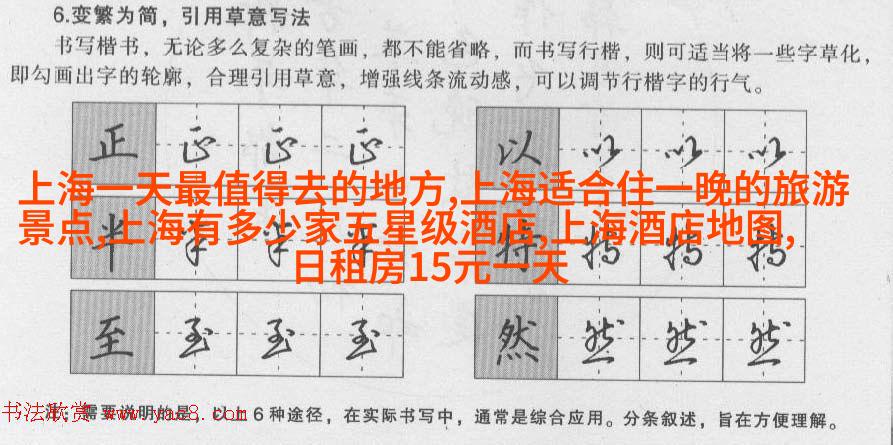 6.变繁为简，引用草意写法
书写楷书，无论多么复杂的笔画，都不能省略，而书写行楷，则可适当将一些字草化，
即勾画出字的轮廓，合理引用草意，增强线条流动感，可以调节行楷字的行气。
正 正 正 正 以 以 以 以
上海一天最值得去的地方,上海适合住一晚的旅游
景点,上海有多少家五星级酒店,上海酒店地图,
日租房15元一天
半 半 半 半 特 特 特 特
至 至 至 至 然 然 然 然
注：需要说明的是，以上6种途径，在实际书写中，通常是综合应用。分条叙述，旨在方便理解。
书法欣赏 www.yac8.com